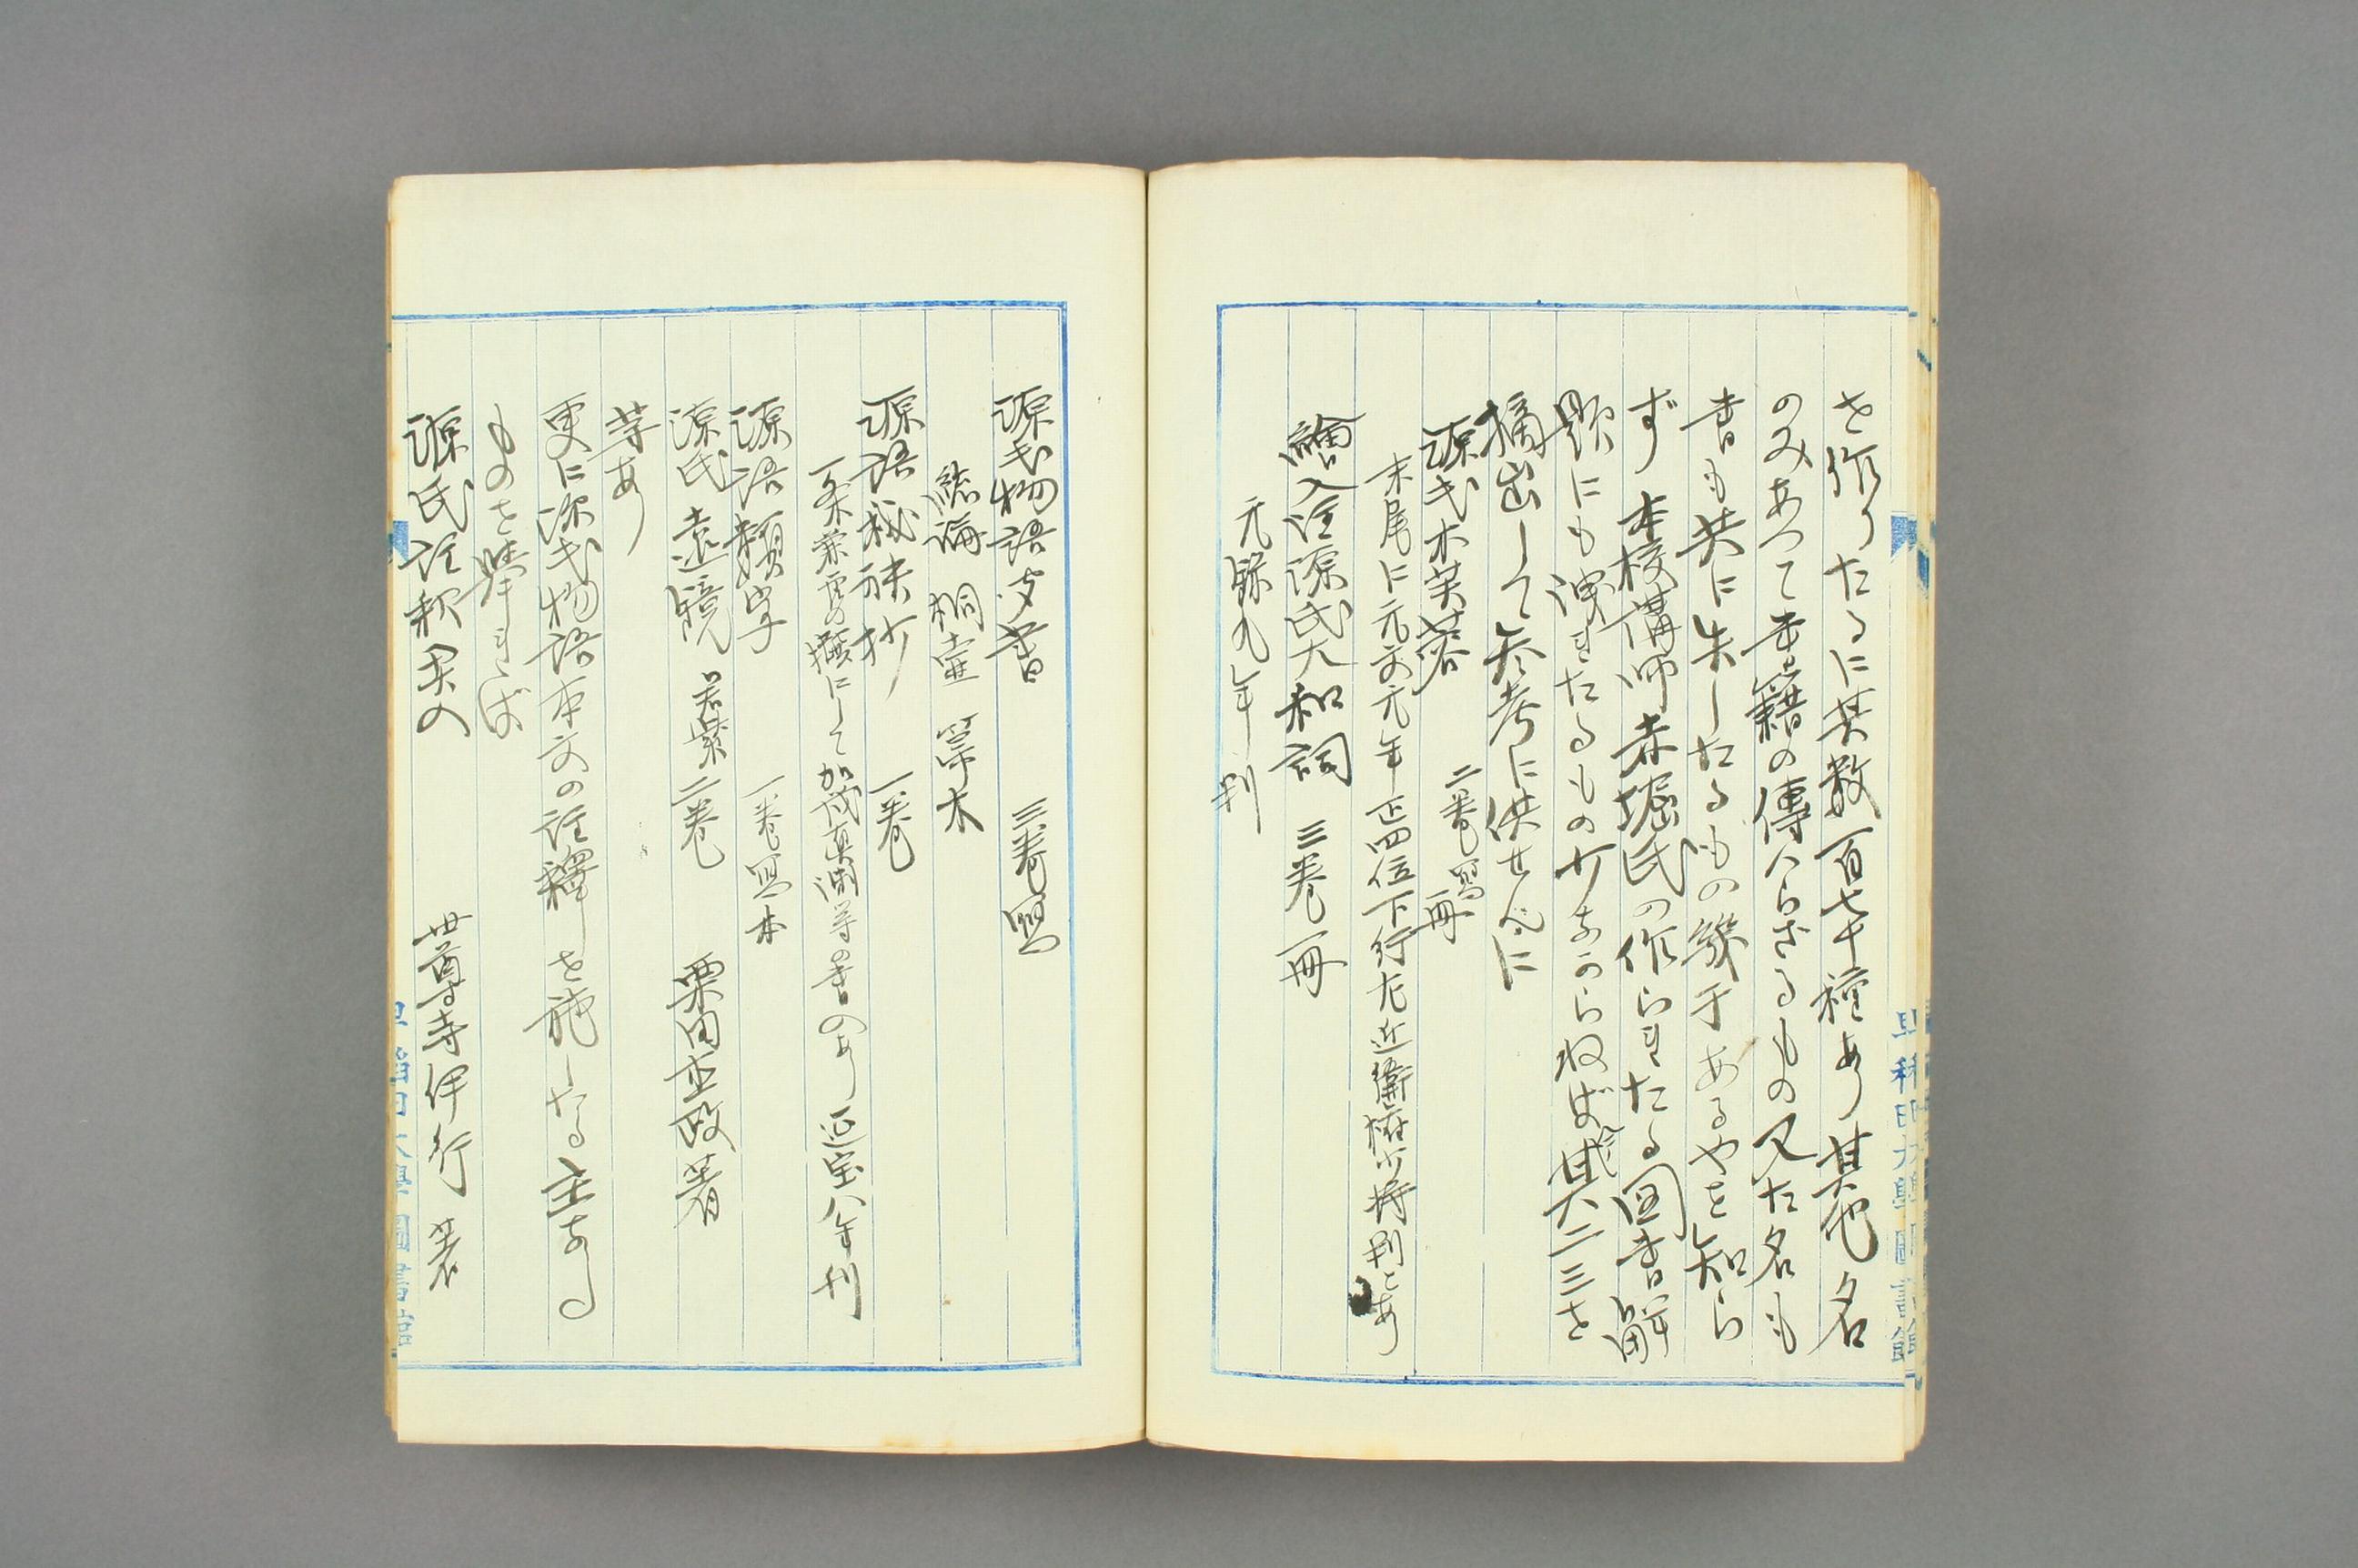 を作りたるに其数百七十種あり其他名
のみあつて書籍の傳へらざるもの又た名も
書も共に失したるもの幾干あるやを知ら
ず本校講師赤堀氏の作られたる図書解
題にも洩れたるもの少なからねば今其二三を
摘出して参考に供せんに
源氏木芙蓉 二巻寫一冊
末尾に元文元年正四位下行左近衛権少将判とあり
繪入註源氏大和詞 三巻一冊
元録九年刊
源氏物語聞書 三巻寫
總論 桐壷 箒木
源語秘訣抄 一巻
一条兼良の撰にして加茂真渕等の書のあり 延宝八年刊
源語類字 一巻寫本
源氏遠鏡 若紫二巻 栗田直政著
等あり
更に源氏物語本文の註釋を施したる主なる
ものを挙ぐれば
源氏註釈
世尊寺伊行 著
早稲田大學圖書館
早稲田大學圖書館